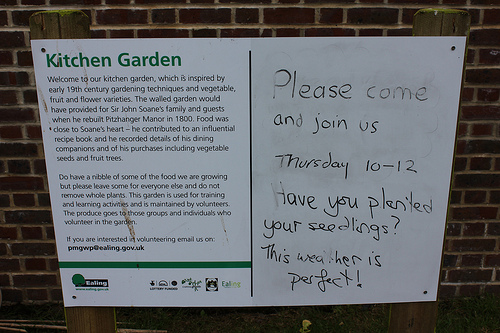 Kitchen Garden
Welcome to our kitchen garden, which is inspired by
early 19th century gardening techniques and vegetable,
fruit and flower varieties. The walled garden would
have provided for Sir John Soane's family and guests
when he rebuilt Pitzhanger Manor in 1800. Food was
close to Soane's heart – he contributed to an influential
recipe book and he recorded details of his dining
companions and of his purchases including vegetable
seeds and fruit trees.
Do have a nibble of some of the food we are growing
but please leave some for everyone else and do not
remove whole plants. This garden is used for training
and learning activities and is maintained by volunteers.
The produce goes to those groups and individuals who
volunteer in the garden.
If you are interested in volunteering email us on:
pmgwp@ealing.gov.uk
Ealing
www.ealing.gov.uk
LOTTERY FUNDED
Ealing
Please come
and join us
Thursday 10-12
Have you planted
your seedlings?
This weather is
perfect!